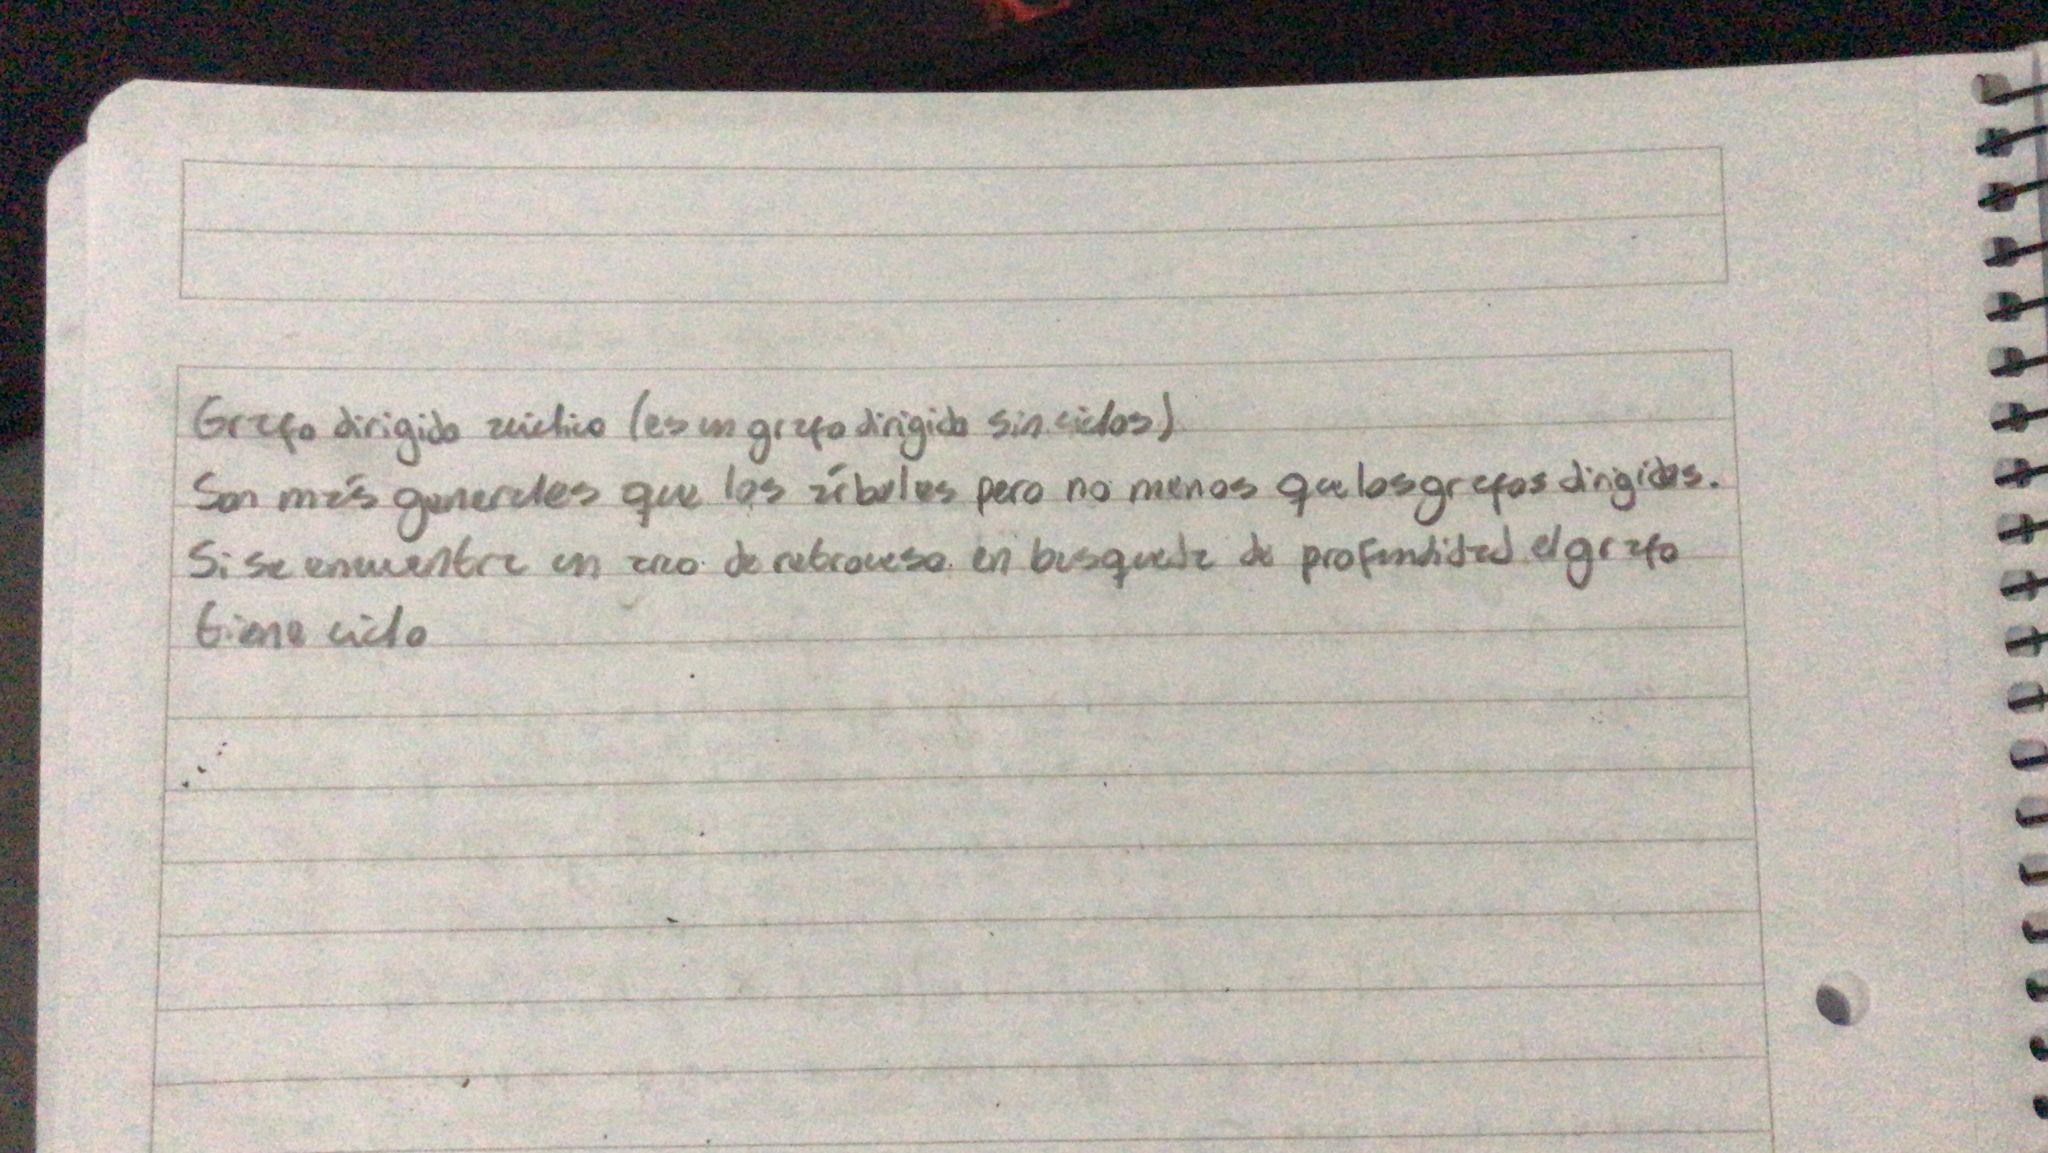 Grafo dirigido acíclico (es un grafo dirigido sin ciclos)
Son más generales que los árboles pero no menos que los grafos dirigidos.
Si se encuentra un arco de retroceso en busqueda de profundidad el grafo
tiene ciclo